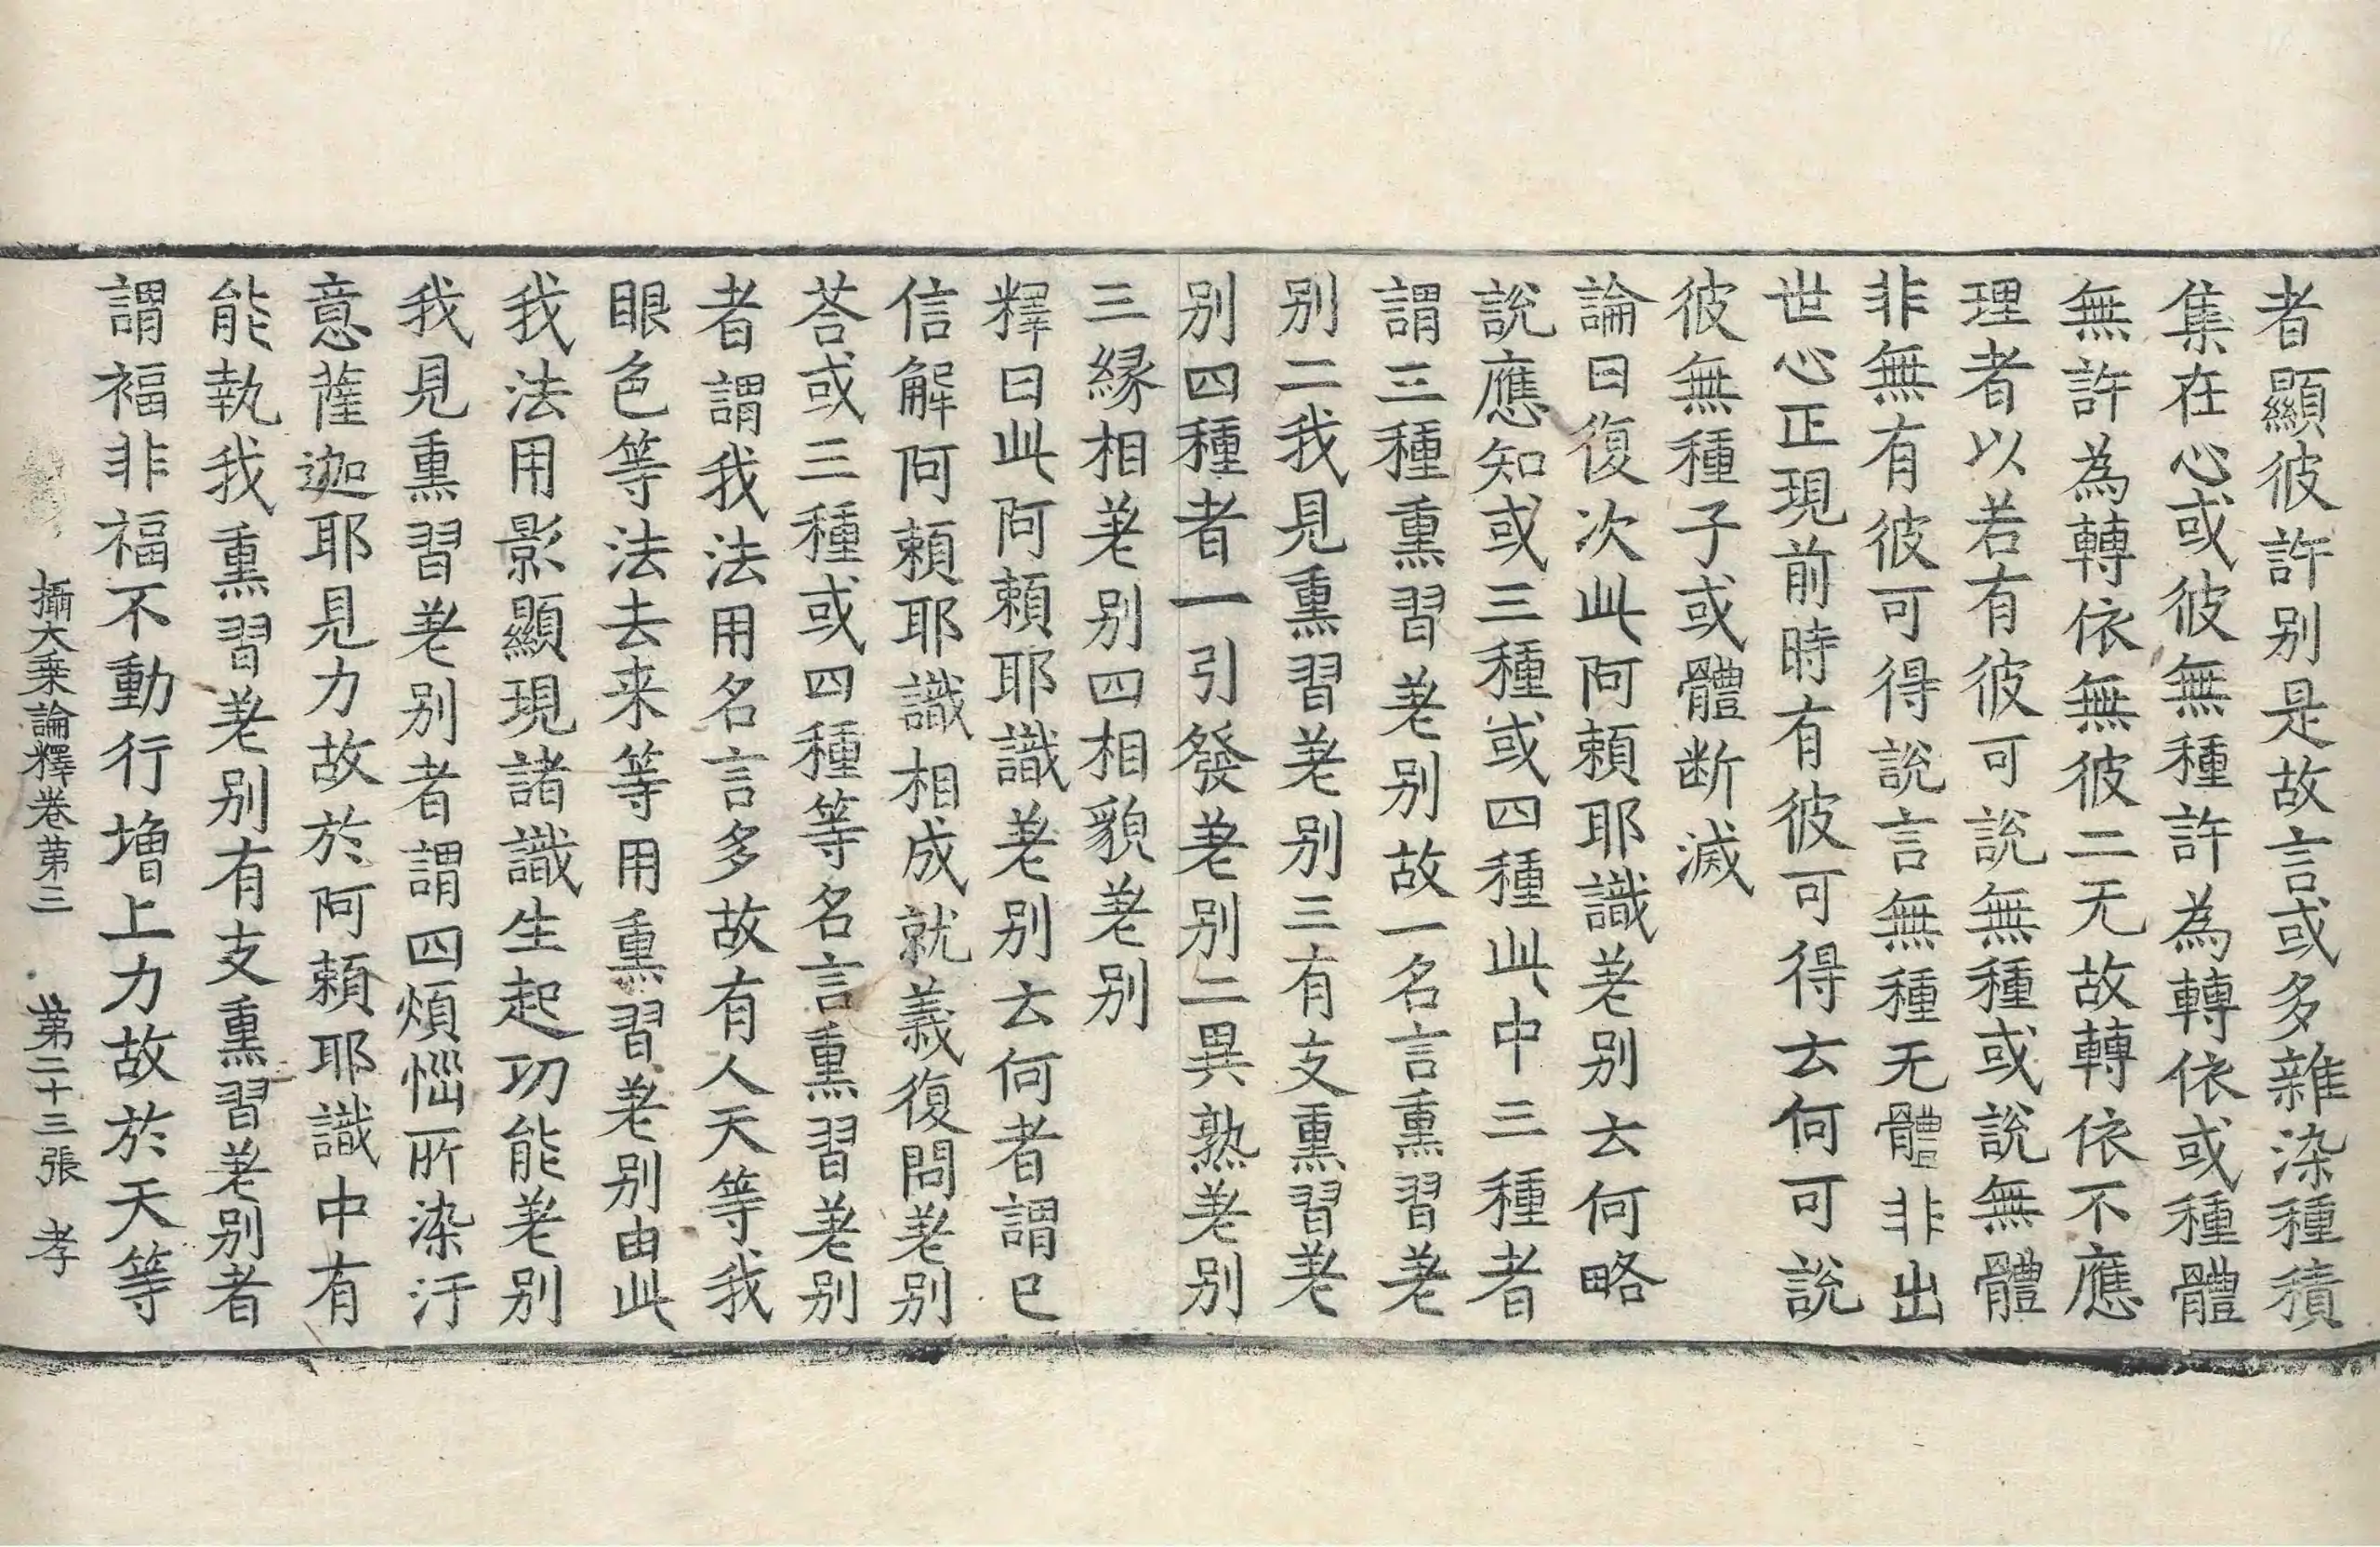 者顯彼許別是故言或多雜染種積
集在心或彼無種許為轉依或種體
無許為轉依無彼二无故轉依不應
理者以若有彼可說無種或說無體
非無有彼可得說言無種无體非出
世心正現前時有彼可得去何可說
彼無種子或體断滅
論曰復次此阿頼耶識差別去何略
說應知或三種或四種此中三種者
謂三種熏習差別故一名言熏習差
別二我見熏習差別三有支熏習差
別四種者一引發差別二異熟差別
三緣相差別四相貌差別
釋曰此阿頼耶識差別去何者謂已
信解阿頼耶識相成就義復問差別
荅或三種或四種等名言熏習差別
者謂我法用名言多故有人天等我
眼色等法去来等用熏習差別由此
我法用影顯現諸識生起功能差別
我見熏習差別者謂四煩惱所染汙
意薩迦耶見力故於阿頼耶識中有
能執我熏習差別有支熏習差別者
謂福非福不動行增上力故於天等
攝大乗論釋卷第三 第二十三張 孝